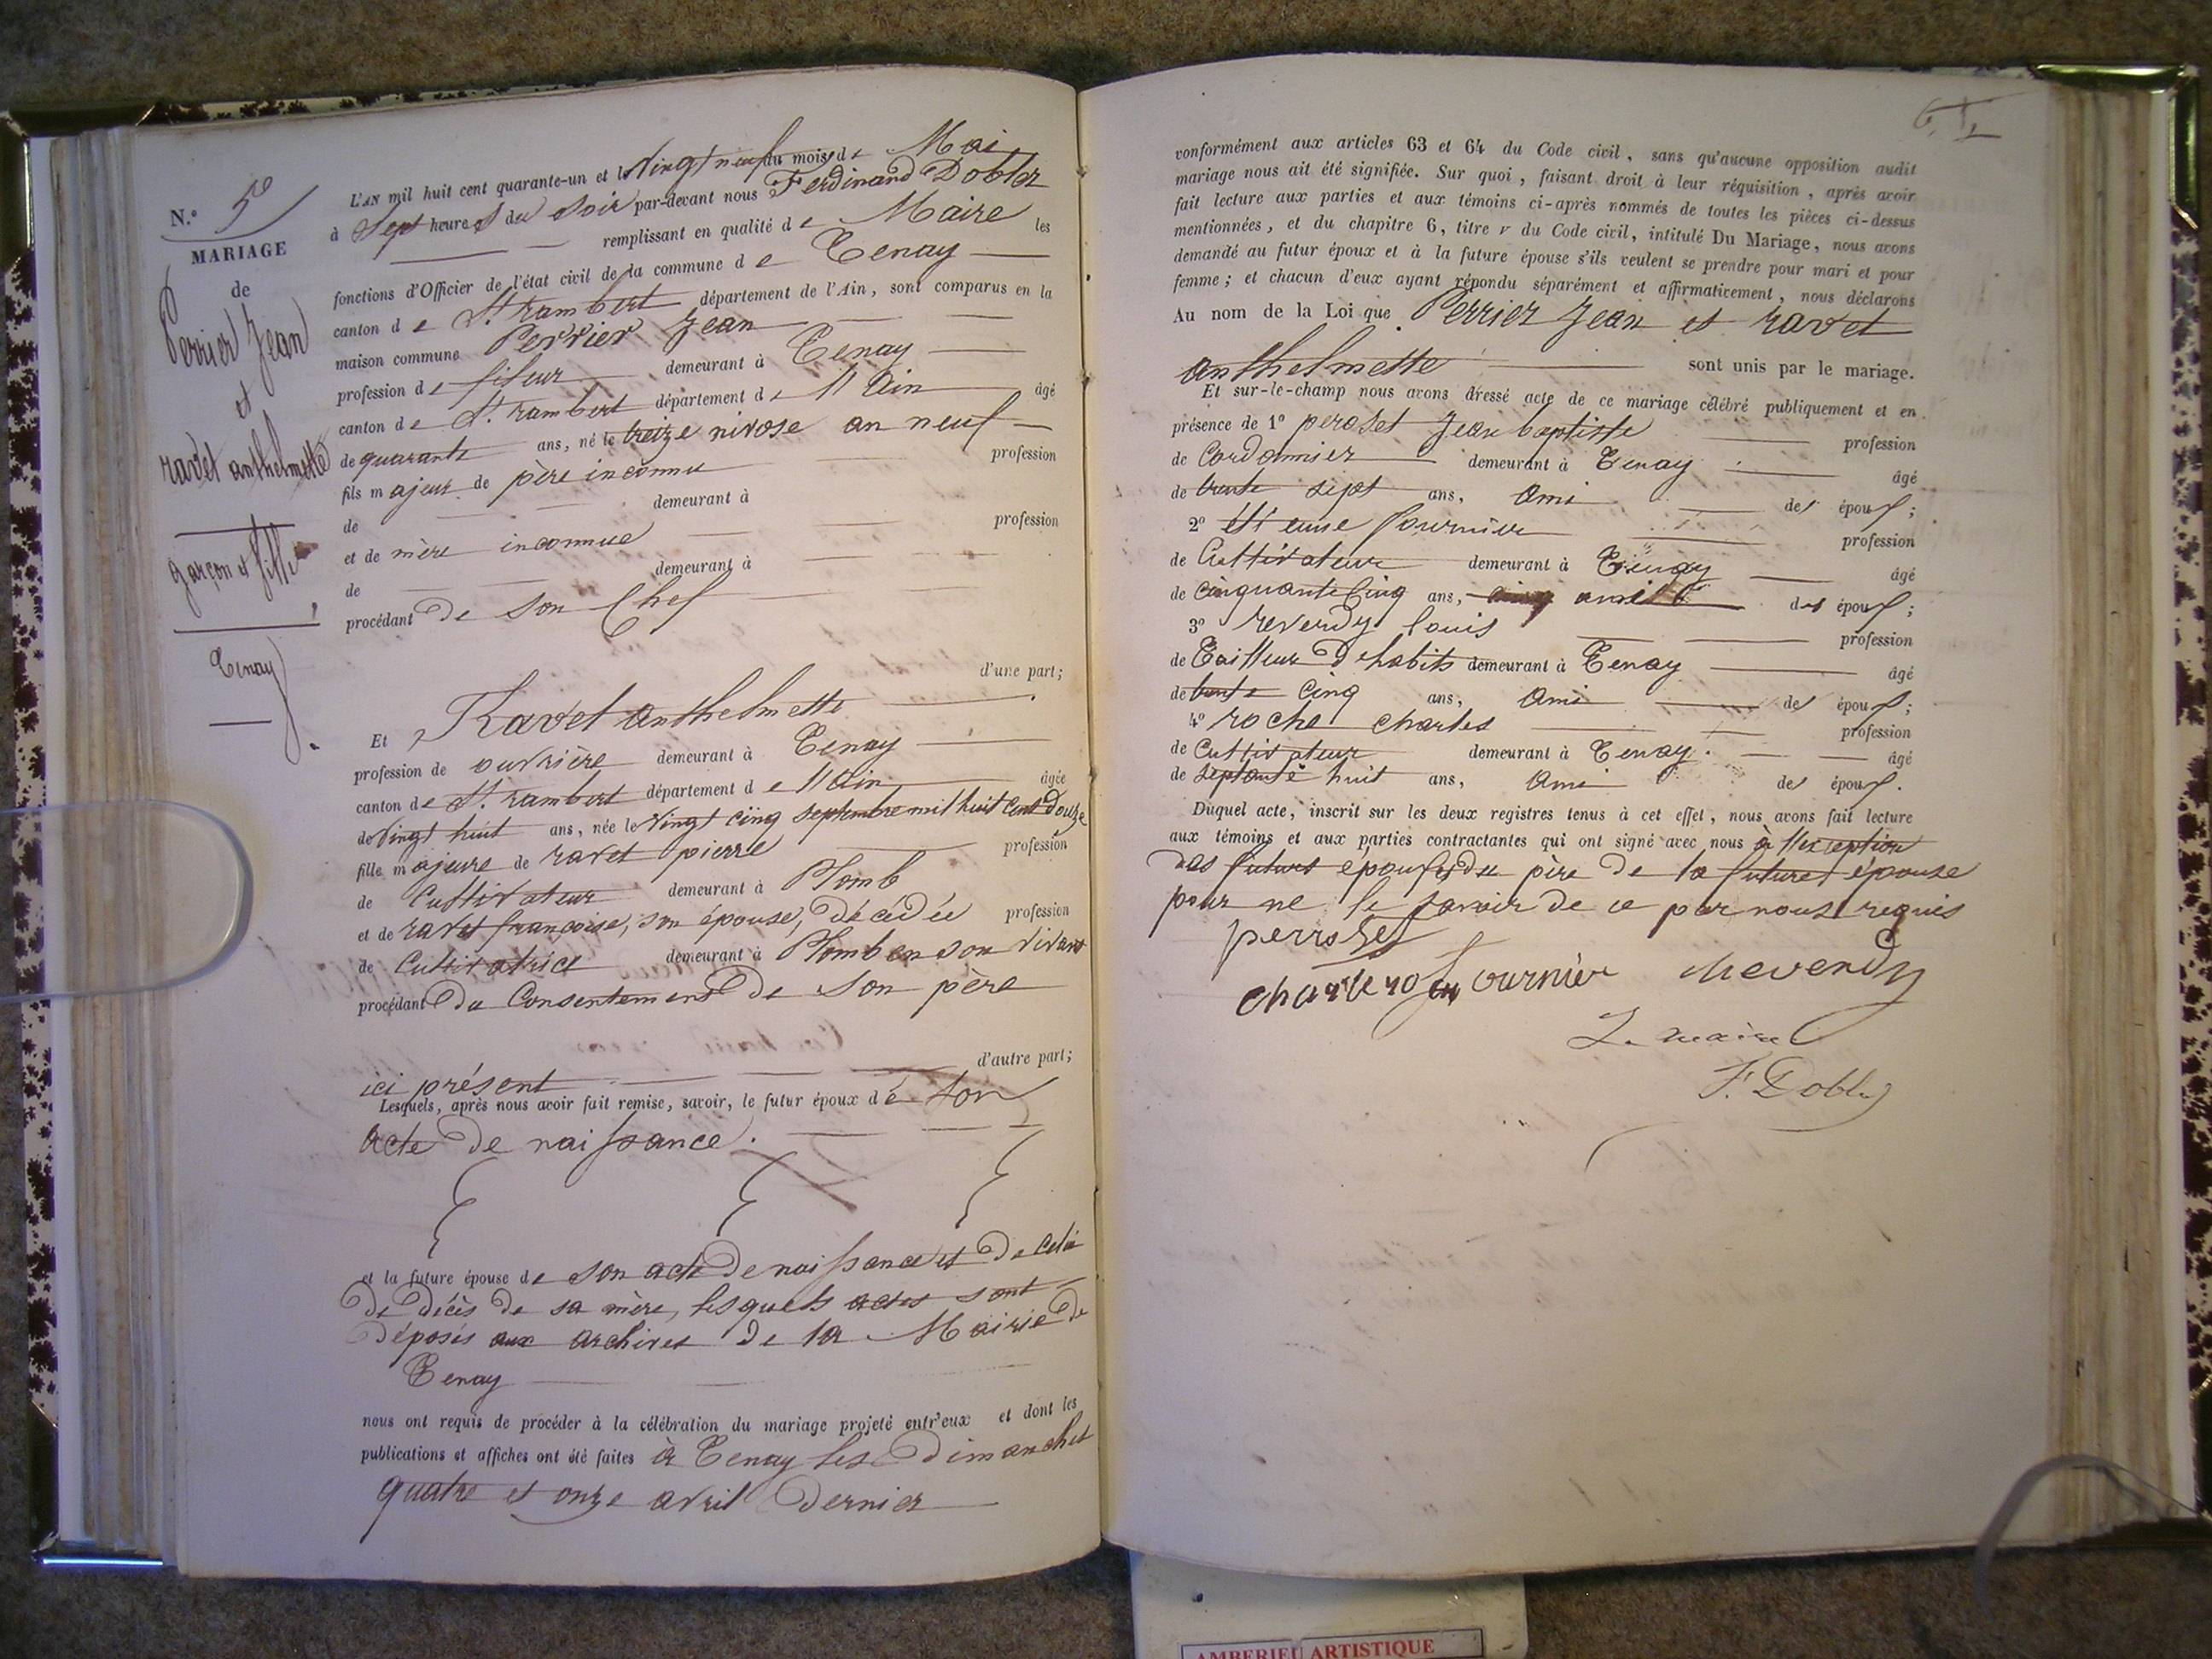 N.° 5
MARIAGE
de
Perrier Jean
et
ravet anthelmette
garçon et fille
Tenay
L'AN mil huit cent quarante-un et le Vingt neuf du mois de Mai
à Sept heures du Soir par-devant nous Ferdinand Dobler
remplissant en qualité de Maire les
fonctions d'Officier de l'état civil de la commune de Tenay
canton de St. rambert département de l'Ain, sont comparus en la
maison commune Perrier Jean
profession de fileur demeurant à Tenay
canton de St. rambert département de l'Ain âgé
de quarante ans, né le treize nivose an neuf
fils majeur de père inconnu profession
de demeurant à
et de mère inconnue profession
de demeurant à
procédant de son Chef
d'une part;
Et Ravet anthelmette
profession de ouvrière demeurant à Tenay
canton de St. rambert département de l'Ain âgée
de Vingt huit ans, née le Vingt cinq septembre mil huit cent douze
fille majeure de ravet pierre profession
de Cultivateur demeurant à Plomb
et de ravet françoise, son épouse, décédée profession
de Cultivatrice demeurant à Plomb en son vivant
procédant du Consentement de son père
d'autre part;
ici présent
Lesquels, après nous avoir fait remise, savoir, le futur époux de son
acte de naissance.
et la future épouse de son acte de naissance et de celui
de décès de sa mère, lesquels actes sont
déposés aux archives de la Mairie de
Tenay
nous ont requis de procéder à la célébration du mariage projeté entr'eux et dont les
publications et affiches ont été faites à Tenay les Dimanches
quatre et onze avril Dernier
conformément aux articles 63 et 64 du Code civil, sans qu'aucune opposition audit
mariage nous ait été signifiée. Sur quoi, faisant droit à leur réquisition, après avoir
fait lecture aux parties et aux témoins ci-après nommés de toutes les pièces ci-dessus
mentionnées, et du chapitre 6, titre v du Code civil, intitulé Du Mariage, nous avons
demandé au futur époux et à la future épouse s'ils veulent se prendre pour mari et pour
femme; et chacun d'eux ayant répondu séparément et affirmativement, nous déclarons
Au nom de la Loi que Perrier Jean et ravet
anthelmette sont unis par le mariage.
Et sur-le-champ nous avons dressé acte de ce mariage célébré publiquement et en
présence de 1° peroset Jean baptiste profession
de Cordonnier demeurant à Tenay âgé
de trente sept ans, ami des époux;
2° Etienne fournier profession
de Cultivateur demeurant à Tenay âgé
de cinquante cinq ans, ami des époux;
3° reverdy louis profession
de Tailleur d'habits demeurant à Tenay âgé
de trente cinq ans, ami des époux;
4° roche charles profession
de Cultivateur demeurant à Tenay. âgé
de septante huit ans, ami des époux.
Duquel acte, inscrit sur les deux registres tenus à cet effet, nous avons fait lecture
aux témoins et aux parties contractantes qui ont signé avec nous à l'exception
des futurs époux et du père de la future épouse
pour ne le savoir de ce par nous requis
perroset
fournier Reverdy
Le maire
F. Dobler
AMBERIEU ARTISTIQUE